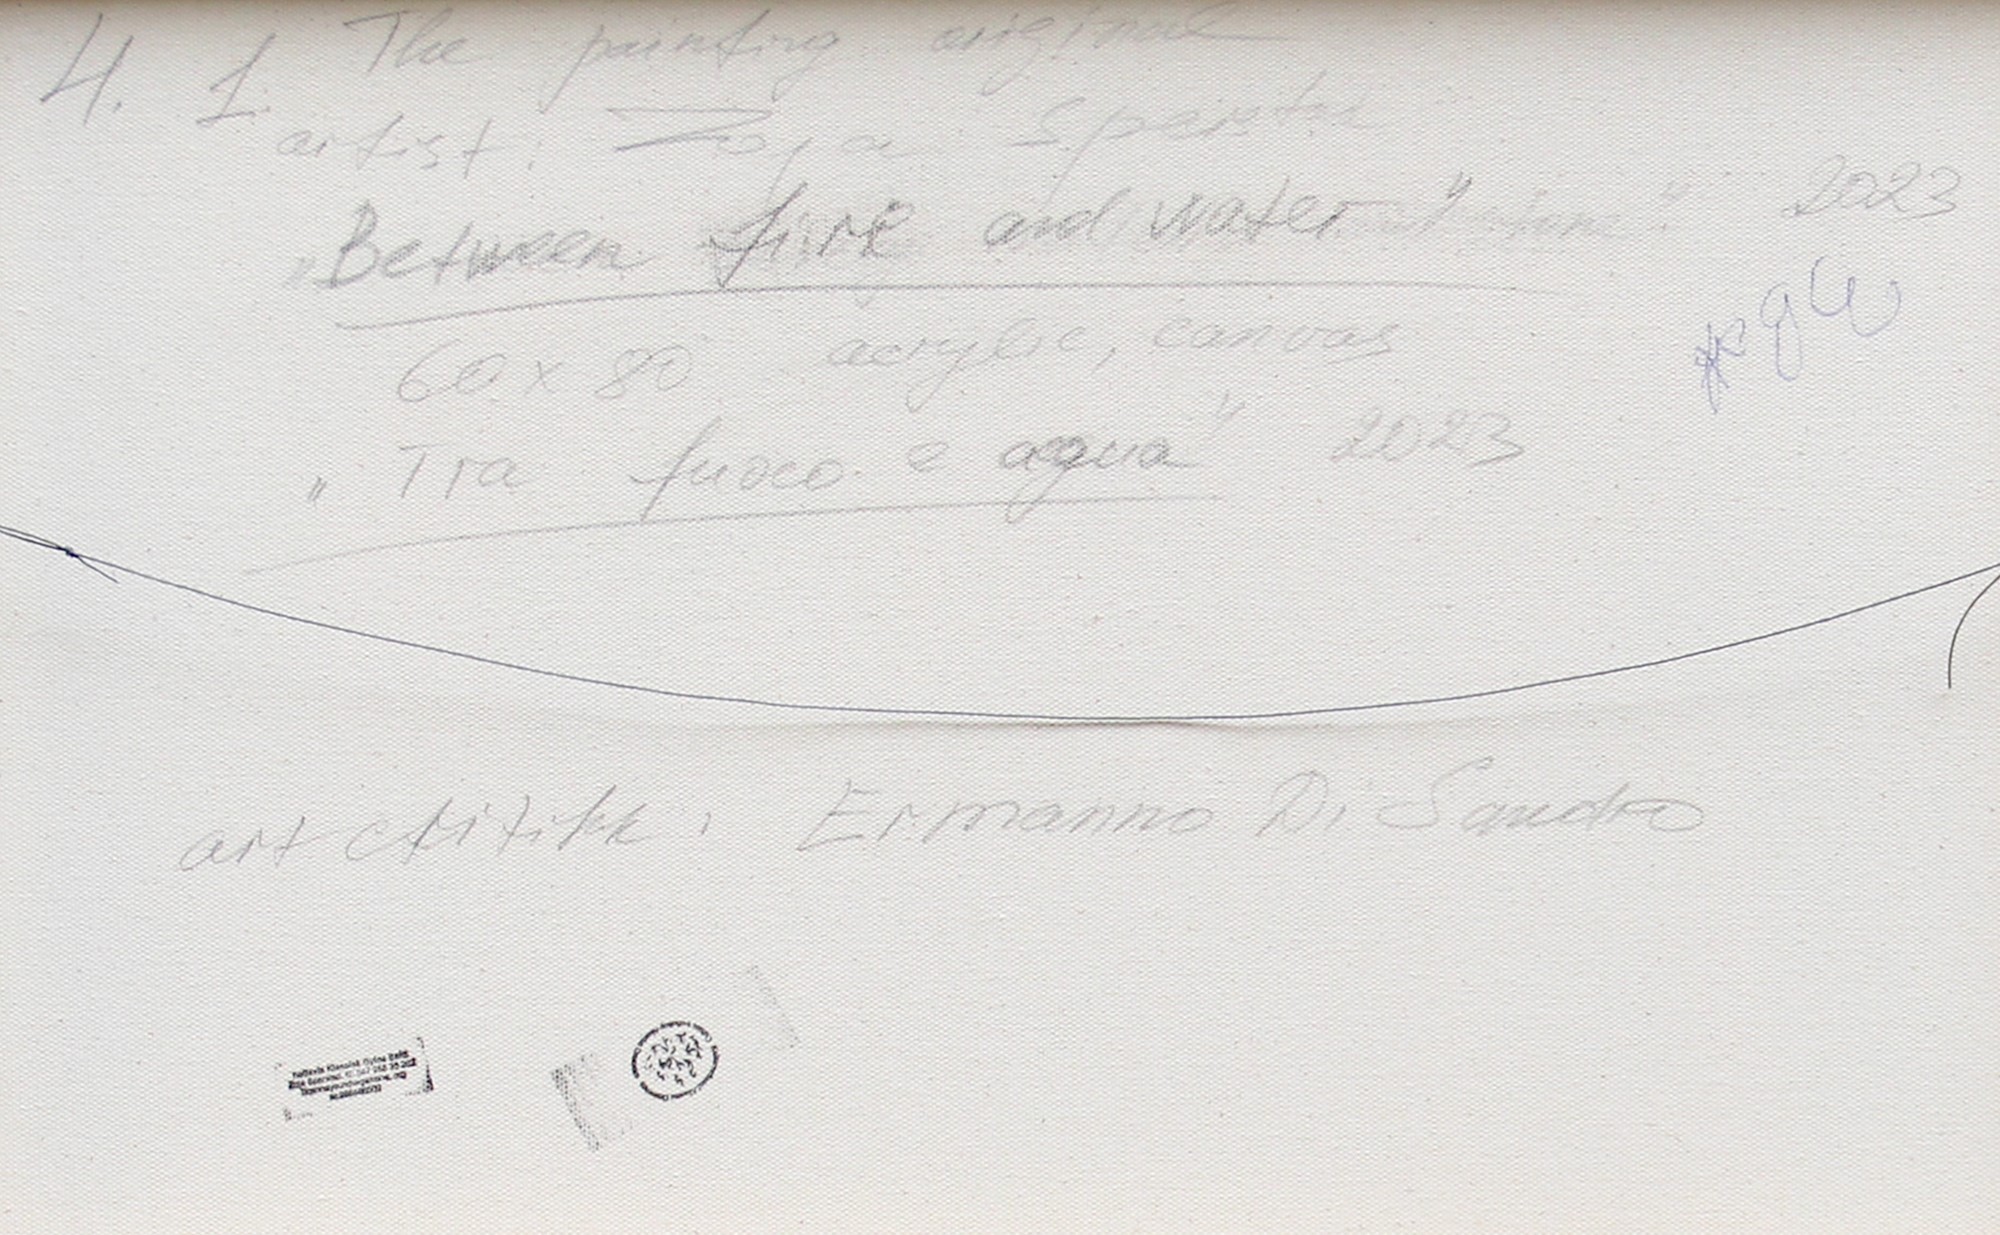 4. 1. The painting original
artist: Zoja Sperstu
„Between fire and water" 2023
60 x 80 acrylic, canvas
„Tra fuoco e acqua" 2023
art critikk: Ermanno Di Sandro